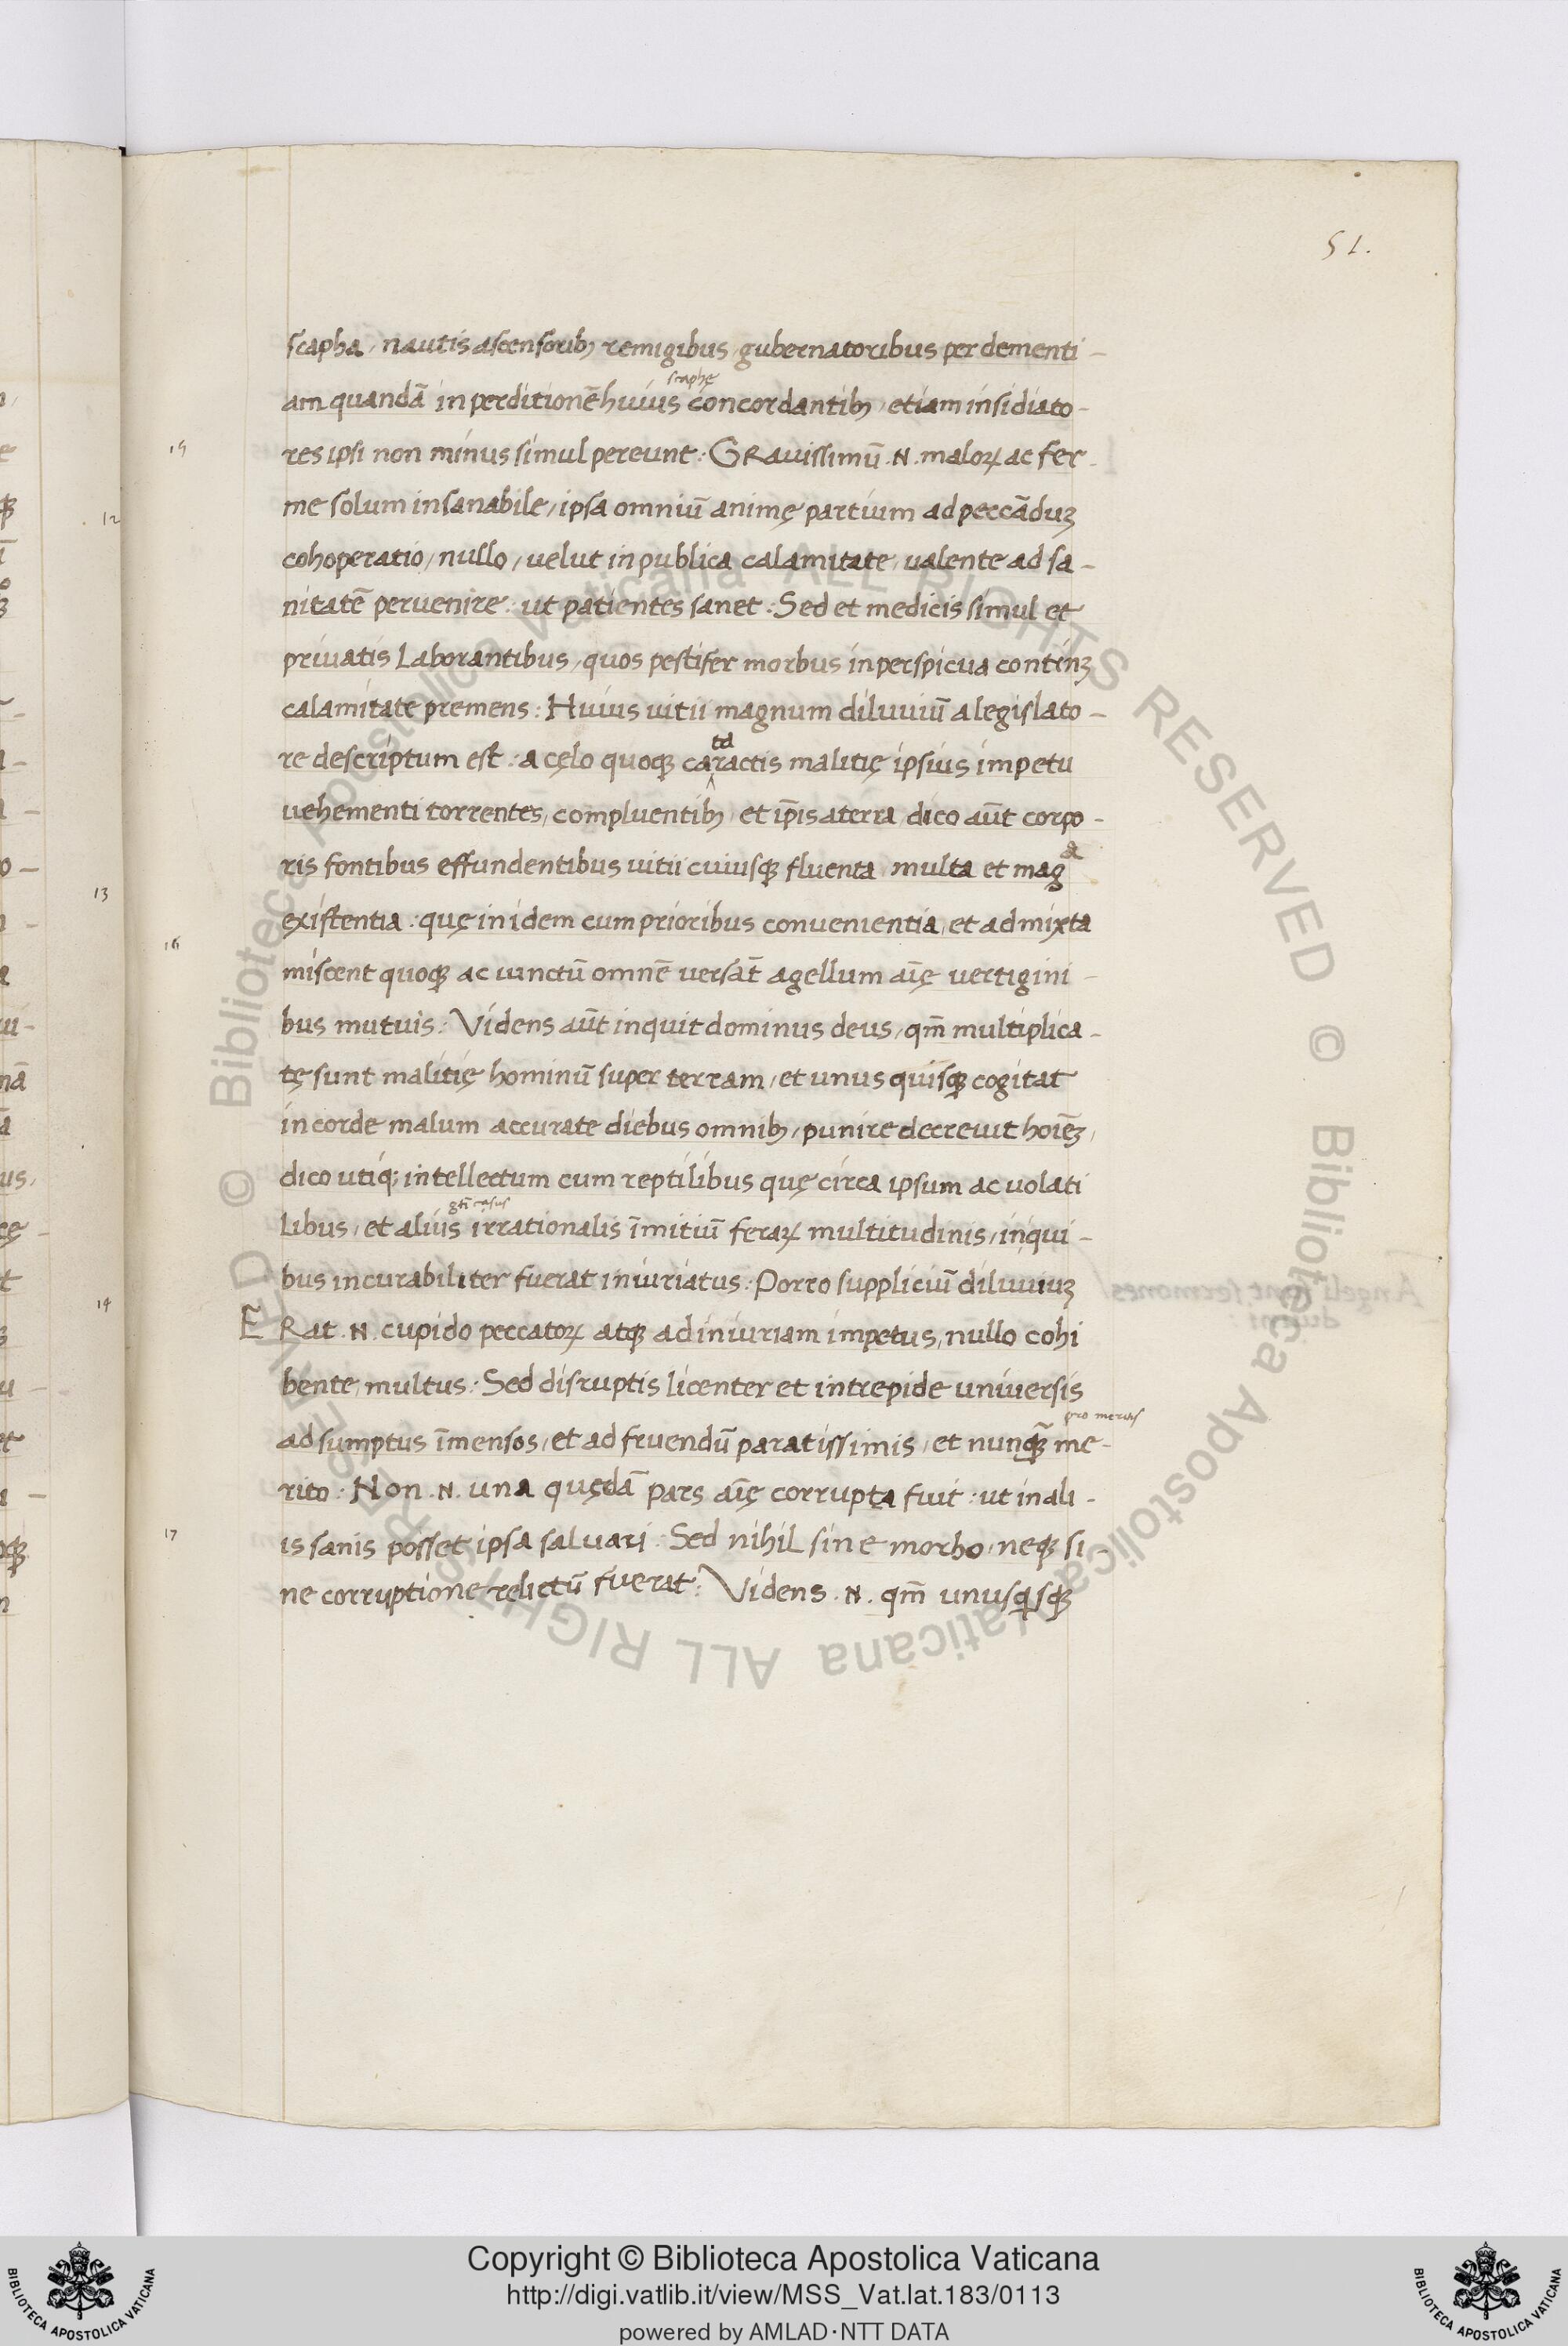 51.
scapha, nautis ascensorib; remigibus, gubernatoribus per dementi-
scaphę
am quandā in perditionē huius concordantib; etiam insidiato-
15
res ipsi non minus simul pereunt: GRauissimū .N. maloꝝ ac fer-
me solum insanabile, ipsa omniū animę partium ad peccāduꝫ
cohoperatio, nullo, uelut in publica calamitate, ualente ad sa-
nitatē peruenire: ut patientes sanet: Sed et medicis simul et
priuatis Laborantibus, quos pestifer morbus in perspicua continꝫ
calamitate premens: Huius uitii magnum diluuiū a legislato-
ta
re descriptum est: a cęlo quoqꝫ caractis malitię ipsius impetu
uehementi torrentes, compluentib; et ip̄is a terra, dico aūt corpo-
a
ris fontibus effundentibus uitii cuiusqꝫ fluenta multa et mag
existentia: quę in idem cum prioribus conuenientia, et admixta
16
miscent quoqꝫ ac iunctū omnē uersāt agellum aīę uertigini-
bus mutuis: Videns aūt inquit dominus deus, qm̄ multiplica-
tę sunt malitię hominū super terram, et unus quisqꝫ cogitat
in corde malum accurate diebus omnib; punire decreuit hoīeꝫ,
dico utiq; intellectum cum reptilibus quę circa ipsum ac uolati
gti casus
Libus, et alius irrationalis īmitiū feraꝝ multitudinis, in qui-
bus incurabiliter fuerat iniuriatus: Porro suppliciū diluuiuꝫ
E Rat .N. cupido peccatoꝝ atqꝫ ad iniuriam impetus, nullo cohi
bente, multus: Sed disruptis licenter et intrepide uniuersis
pro meritis
ad sumptus īmensos, et ad fruendū paratissimis, et nunqꝫ̄ me-
rito: Non .N. una quędā pars aīę corrupta fuit: ut in ali-
17
is sanis posset ipsa saluari: Sed nihil sine morbo, neqꝫ si-
ne corruptione relictū fuerat: Videns .N. qm̄ unusqisqꝫ
12
13
14
Copyright © Biblioteca Apostolica Vaticana
http://digi.vatlib.it/view/MSS_Vat.lat.183/0113
powered by AMLAD·NTT DATA
BIBLIOTECA APOSTOLICA VATICANA
BIBLIOTECA APOSTOLICA VATICANA
© Biblioteca Apostolica Vaticana ALL RIGHTS RESERVED © Biblioteca Apostolica Vaticana ALL RIGHTS RESERVED